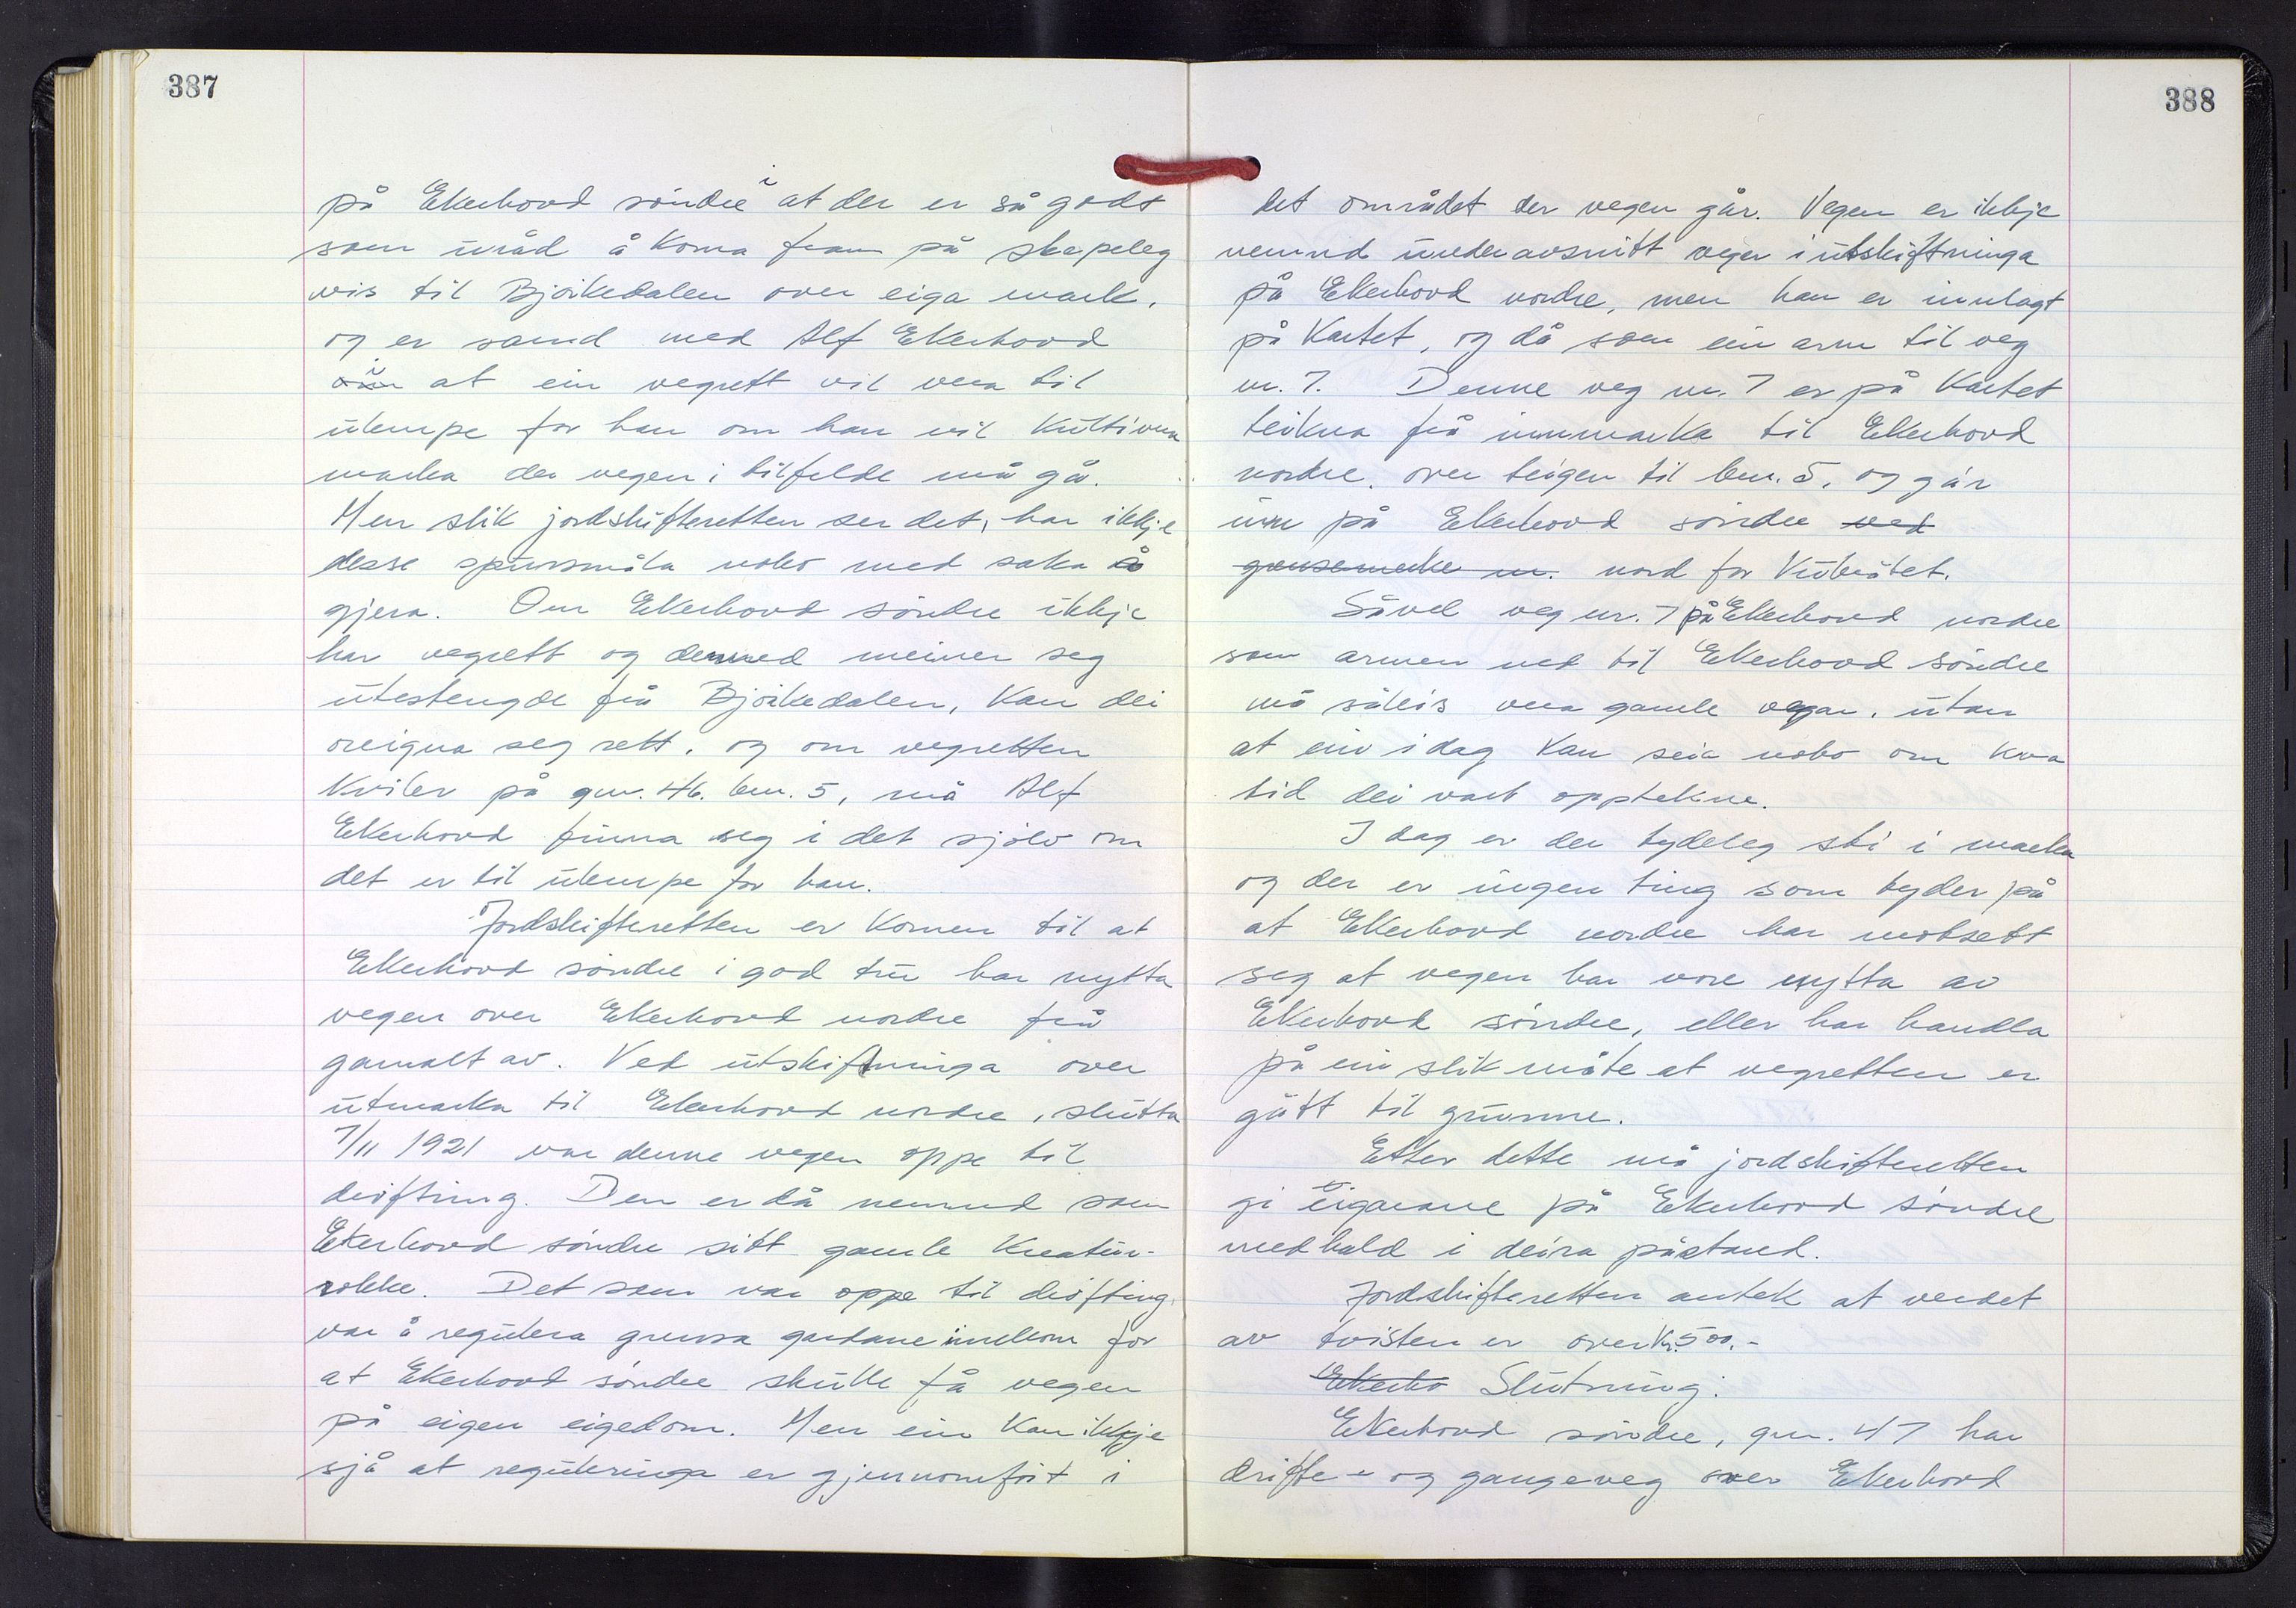 387
på Ekerhovd søndre i at der er så godt
som uråd å koma fram på skapeleg
vis til Bjørkedalen over eiga mark.
og er samd med Alf Ekerhovd
i at ein vegrett vil vera til
ulempe for han om han vil kultivera
marka der vegen i tilfelde må gå.
Men slik jordskifteretten ser det, har ikkje
desse spursmåla noko med saka å
gjera. Om Ekerhovd søndre ikkje
har vegrett og dermed meiner seg
utestengde frå Bjørkedalen, kan dei
oreigna seg rett. og om vegretten
kviler på gnr. 46. bnr. 5, må Alf
Ekerhovd finna seg i det sjølv om
det er til ulempe for han.
Jordskifteretten er komen til at
Ekerhovd søndre i god tru har nytta
vegen over Ekerhovd nordre frå
gamalt av. Ved utskiftninga over
utmarka til Ekerhovd nordre, slutta
7/11 1921 var denne vegen oppe til
drøfting. Den er då nemnd som
Ekerhovd søndre sitt gamle kreatur-
rokke. Det som var oppe til drøfting
var å regulera grensa gardane imellom for
at Ekerhovd søndre skulle få vegen
på eigen eigedom. Men ein kan ikkje
sjå at reguleringa er gjennomført i
388
det området der vegen går. Vegen er ikkje
nemnd under avsnitt veger i utskiftninga
på Ekerhovd nordre, men han er innlagt
på kartet, og då som ein arm til veg
nr. 7. Denne veg nr. 7 er på kartet
teikna frå innmarka til Ekerhovd
nordre. over teigen til bnr. 5. og går
inn på Ekerhovd søndre ved
grensemerke nr. nord for Kubåtet.
Såvel veg nr. 7 på Ekerhovd nordre
som armen ned til Ekerhovd søndre
må såleis vera gamle vegar, utan
at ein i dag kan seia noko om kva
tid dei vart opptekne.
I dag er der tydeleg sti i marka
og der er ingen ting som tyder på
at Ekerhovd nordre har motsett
seg at vegen har vore nytta av
Ekerhovd søndre, eller har handla
på ein slik måte at vegretten er
gått til grunne.
Etter dette må jordskifteretten
gi eigarane på Ekerhovd søndre
medhald i deira påstand.
Jordskifteretten antek at verdet
av tvisten er over kr. 500.-
Ekerho Slutning:
Ekerhovd søndre, gnr. 47 har
drifte- og gangeveg over Ekerhovd